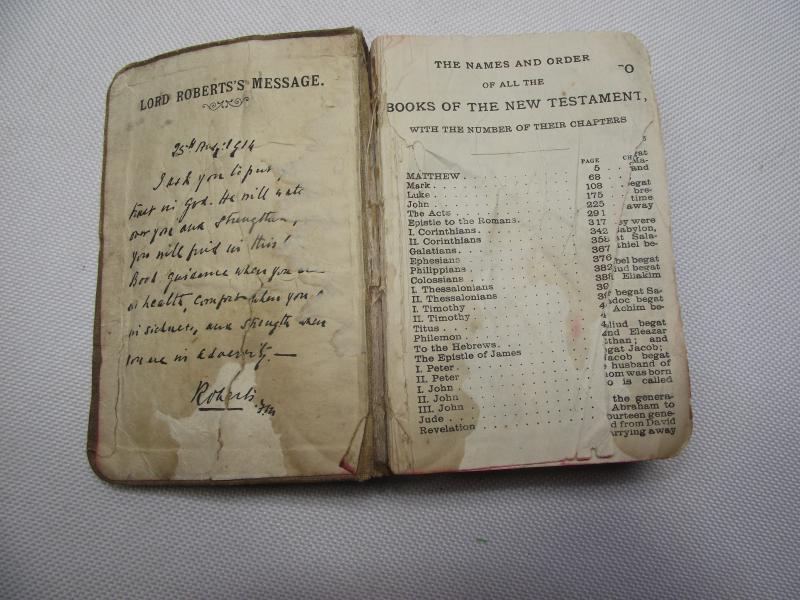 LORD ROBERTS'S MESSAGE.
25th Aug. 1914
I ask you to put your
trust in God. He will watch
over you and strengthen you.
You will find in this little
Book guidance when you are
in health, comfort when you are
in sickness, and strength when
you are in adversity.—
Roberts. F.M.
THE NAMES AND ORDER
OF ALL THE
BOOKS OF THE NEW TESTAMENT,
WITH THE NUMBER OF THEIR CHAPTERS
PAGE
MATTHEW 5
Mark 68
Luke 108
John 175
The Acts 225
Epistle to the Romans. 291
I. Corinthians 317
II. Corinthians 342
Galatians. 358
Ephesians 367
Philippians 376
Colossians 382
I. Thessalonians 388
II. Thessalonians
I. Timothy
II. Timothy
Titus
Philemon
To the Hebrews.
The Epistle of James
I. Peter
II. Peter
I. John
II. John
III. John
Jude
Revelation
and
begat
time
away
were
Babylon,
begat
Eliakim
begat
begat
Achim
begat
and Eleazar
and
begat Jacob;
Jacob begat
husband of
was born
is called
the
Abraham to
fourteen
from David
carrying away